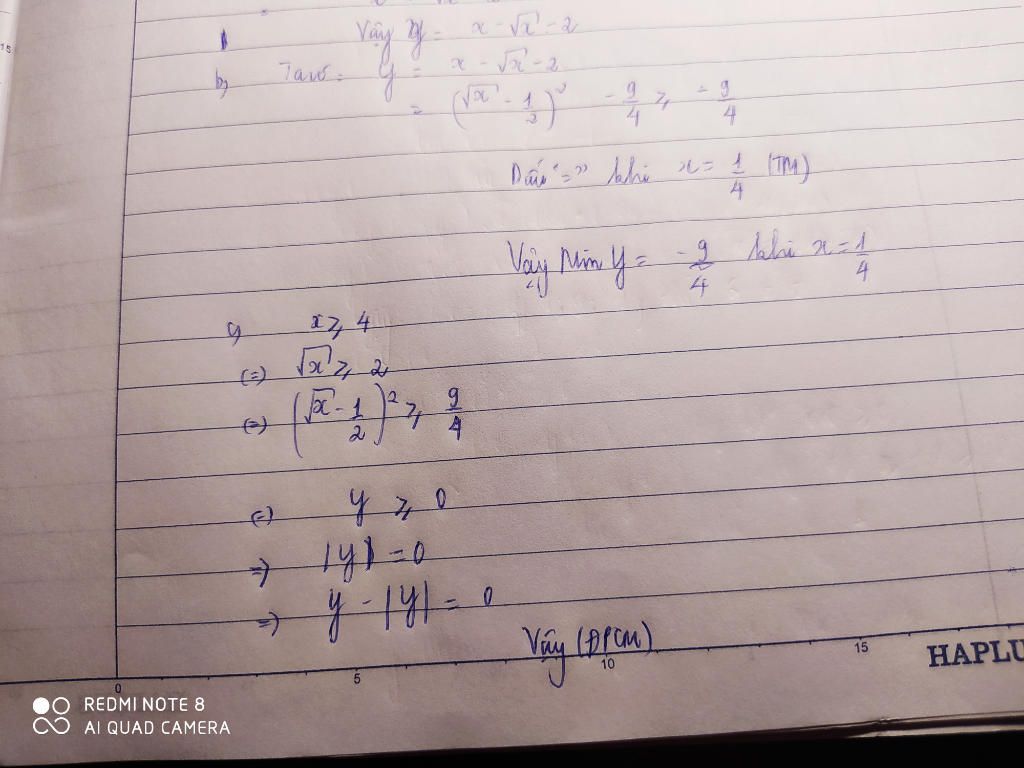 Vậy y = x - √x - 2
b, Ta có: y = x - √x - 2
= (√x - 1/2)² - 9/4 ≥ -9/4
Dấu "=" khi x = 1/4 (TM)
Vậy Min y = -9/4 khi x = 1/4
c, x ≥ 4
(=) √x ≥ 2
(=) (√x - 1/2)² ≥ 9/4
(=) y ≥ 0
=) |y| = 0
=) y - |y| = 0
Vậy (ĐPCM)
0 5 10 15
HAPLU
REDMI NOTE 8
AI QUAD CAMERA
15